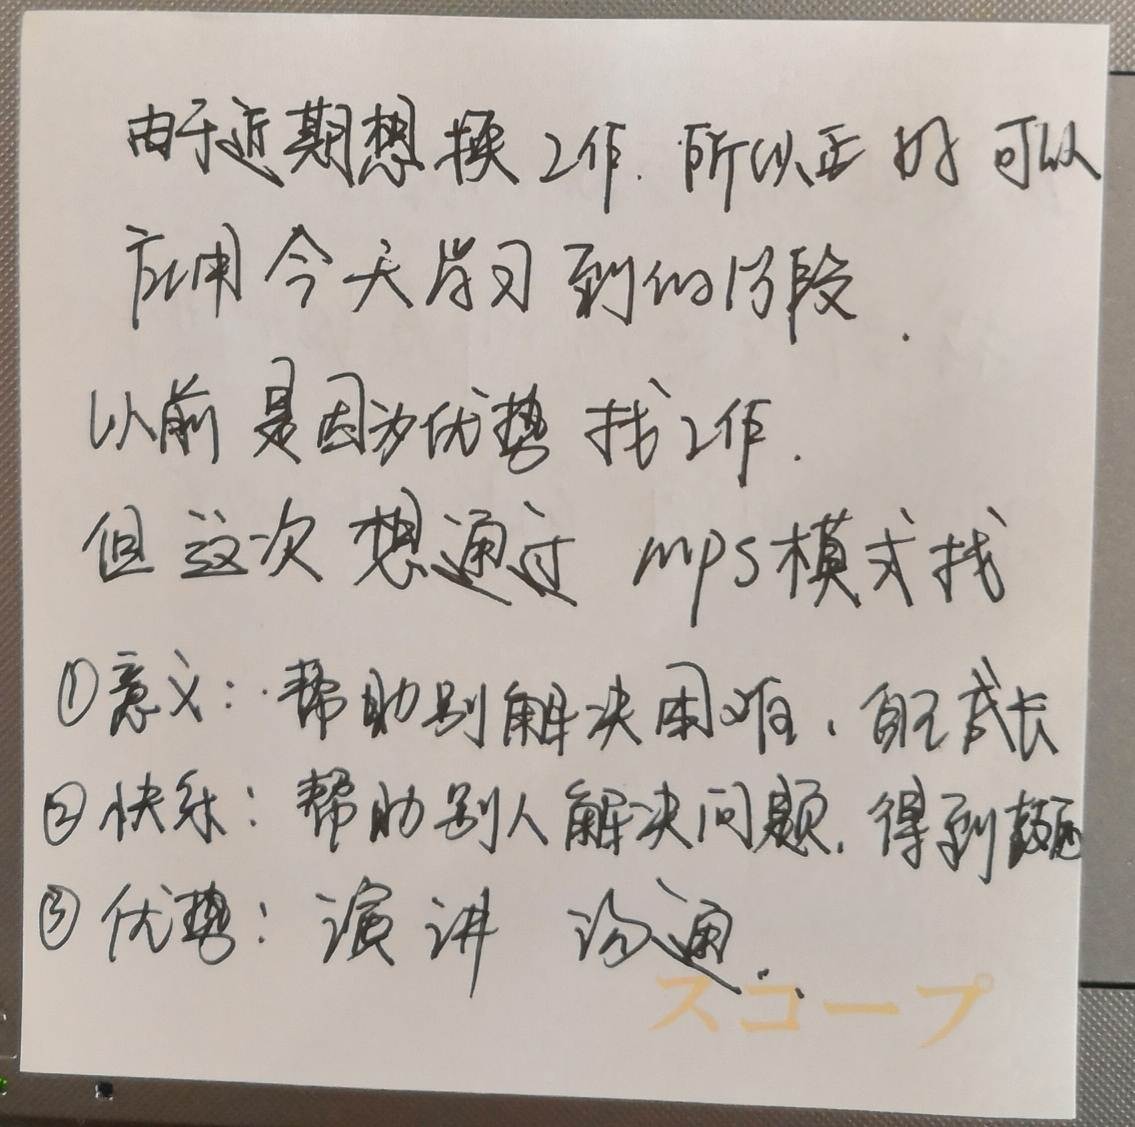 由于近期想换工作.所以正好可以
应用今天学习到的阶段.
以前是因为优势找工作.
但这次想通过mps模式找
①意义:帮助别解决困难,自己成长
②快乐:帮助别人解决问题.得到
③优势:演讲 沟通..
スコープ